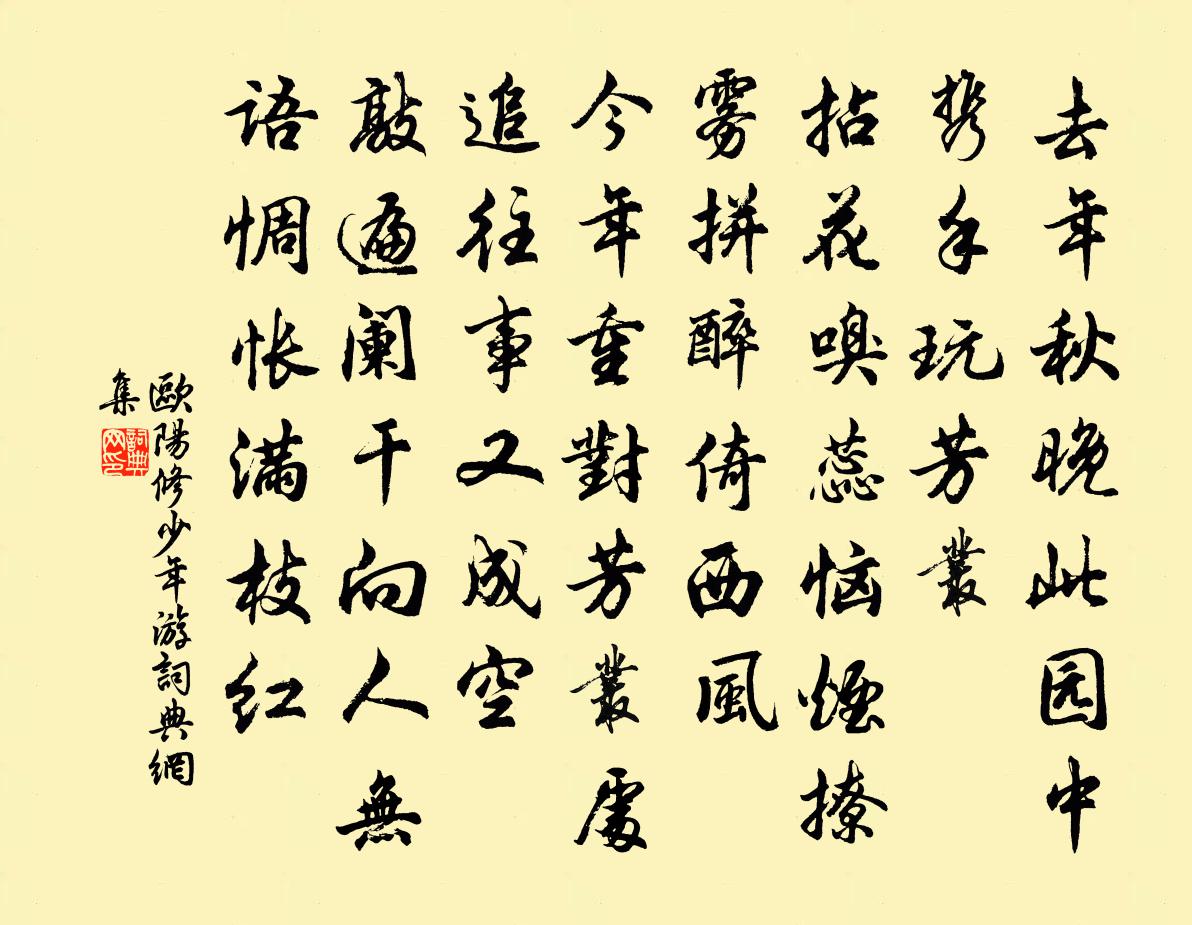 去年秋晚此园中
携手玩芳叢
拈花嗅蕊恼煙撩
雾拼醉倚西風
今年重對芳叢處
追往事又成空
敲遍阑干向人無
语惆怅满枝红
歐陽修少年游詞典網
集
詞典
网印